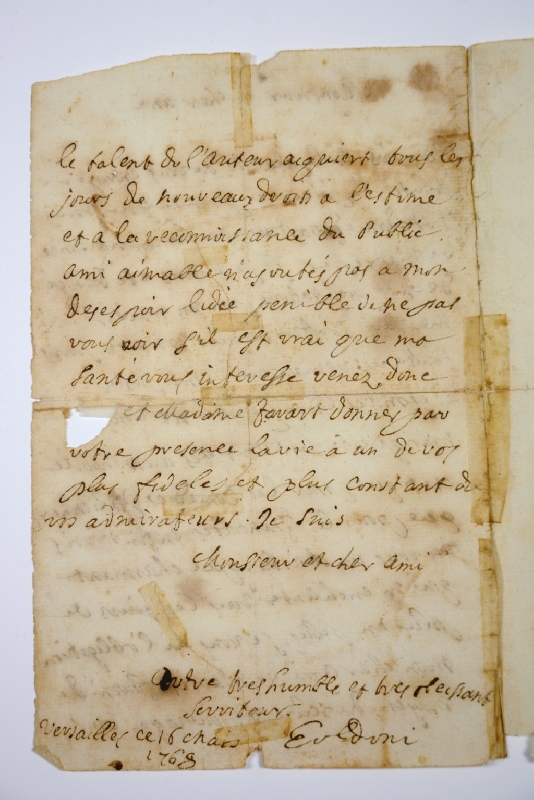 le talent de l'auteur acquiert tous les
jours de nouveaux droits a l'estime
et a la reconnoissance du Public.
ami aimable n'ajoutés pas a mon
desespoir lidée penible de ne pas
vous voir s'il est vrai que ma
santé vous interesse venez donc
et Madame favart donnez par
votre presence la vie à un de vos
plus fideles et plus constant de
vos admirateurs. Je suis
Monsieur et cher ami
Votre tres humble et tres obeissant
serviteur.
Versailles ce 16
1768